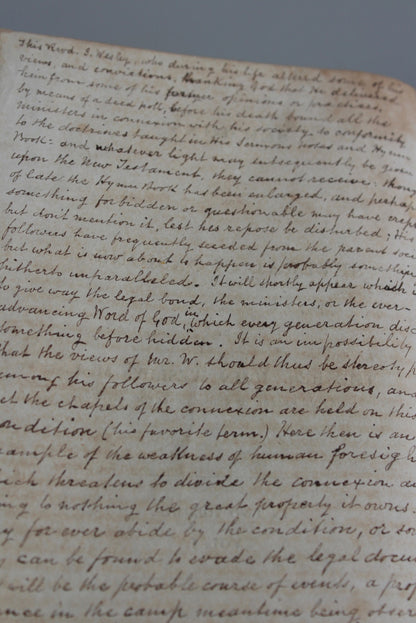 This Revd. J. Wesley, who during his life altered some of his
views, and convictions, thanking God that He delivered
him from some of his former opinions or practices,
by means of a deed poll, before his death bound all the
ministers in connexion with his society, to conformity
to the doctrines taught in His Sermons Notes and Hymn
Book: and whatever light may subsequently be given
upon the New Testament, they cannot receive
of late the Hymn Book has been enlarged, and perhap
something forbidden or questionable may have crept
but don't mention it, lest his repose be disturbed;
followers have frequently seceded from the parent soci
but what is now about to happen is probably somethin
hitherto unparalleled. It will shortly appear which i
to give way the legal bond, the ministers, or the ever-
advancing Word of God, in which every generation dis
something before hidden. It is an impossibility
that the views of Mr. W. should thus be stereotyp
among his followers to all generations, and
et the chapels of the connexion are held on this
condition (his favorite term.) Here then is an
xample of the weakness of human foresig
ich threatens to divide the connexion a
ing to nothing the great property it owns.
y for ever abide by the condition, or so
y can be found to evade the legal docu
will be the probable course of events, a pro
ence in the camp meantime being obser